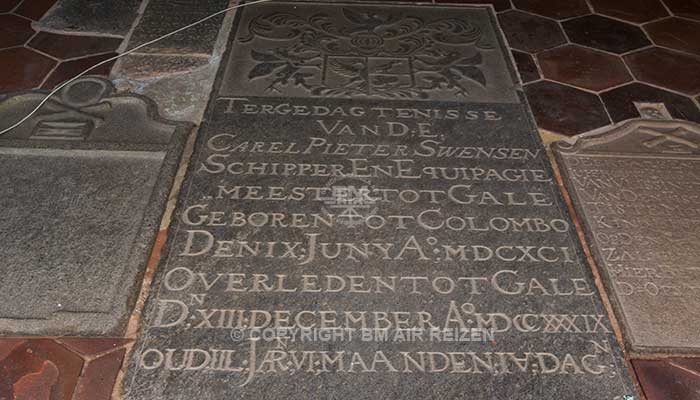 TERGEDAGTENISSE
VAN D: E,
CAREL PIETER SWENSEN
SCHIPPER EN EQUIPAGIE
MEESTER TOT GALE
GEBOREN TOT COLOMBO
DEN IX: JUNY A°: MDCXCI
OVERLEDEN TOT GALE
DN: XIII: DECEMBER A°: MDCCXXXIX
OUD IIL: JAR: VI: MAANDEN: IV: DAGN
© COPYRIGHT BM AIR REIZEN